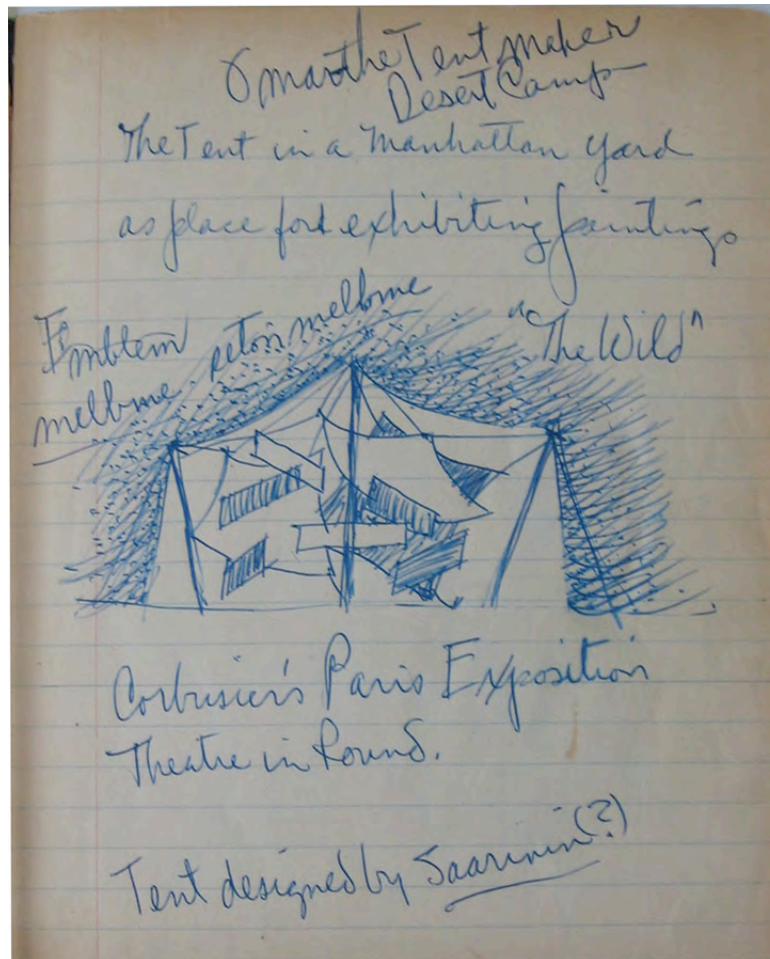 Omar the Tent maker
Desert Camp
The Tent in a Manhattan yard
as place for exhibiting paintings
Emblem
mellbme. peton mellbme
"The Wild"
Corbusier's Paris Exposition
Theatre in Round.
Tent designed by Saarinin(?)